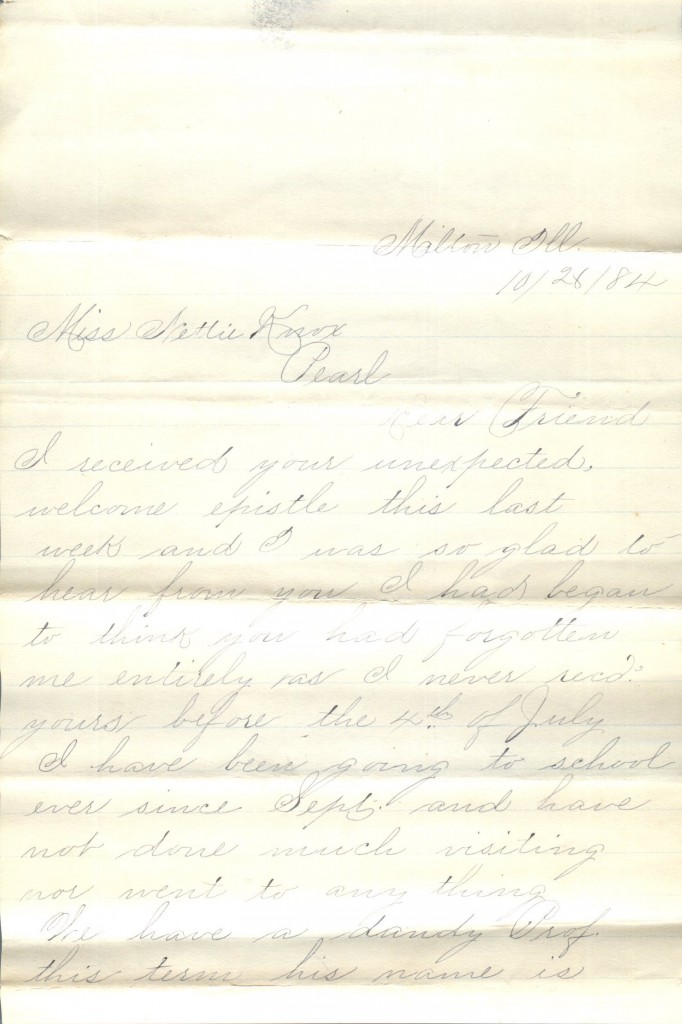 Milton Ill.
10/28/84
Miss Nettie Knox
Pearl
Dear Friend
I received your unexpected,
welcome epistle this last
week and I was so glad to
hear from you I had began
to think you had forgotten
me entirely as I never rec'd.
yours before the 4th of July
I have been going to school
ever since Sept. and have
not done much visiting
nor went to any thing
We have a dandy Prof.
this term his name is